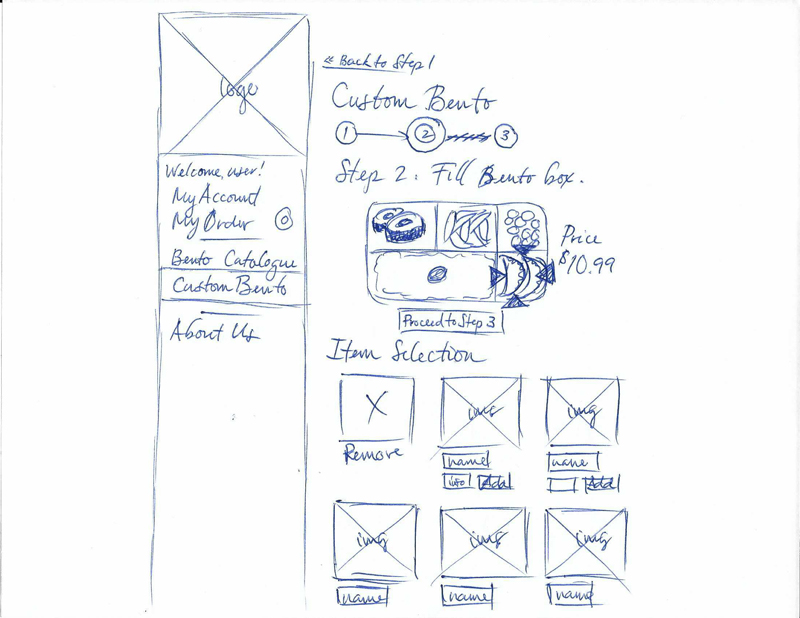 logo
Welcome, user!
My Account
My Order 0
Bento Catalogue
Custom Bento
About Us
« Back to Step 1
Custom Bento
1 2 3
Step 2: Fill Bento box.
Price
$10.99
Proceed to Step 3
Item Selection
X img img
Remove name name
info Add Add
img img img
name name name